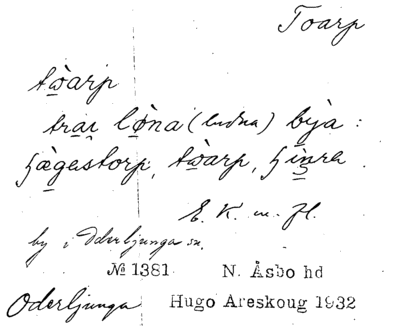 Toarp
tòarp
trai lòna (ludna) býa :
hægestorp, tòarp, hinra.
E. K. m. fl.
by i Oderljunga sn.
№ 1381 N. Åsbo hd
Oderljunga Hugo Areskoug 1932